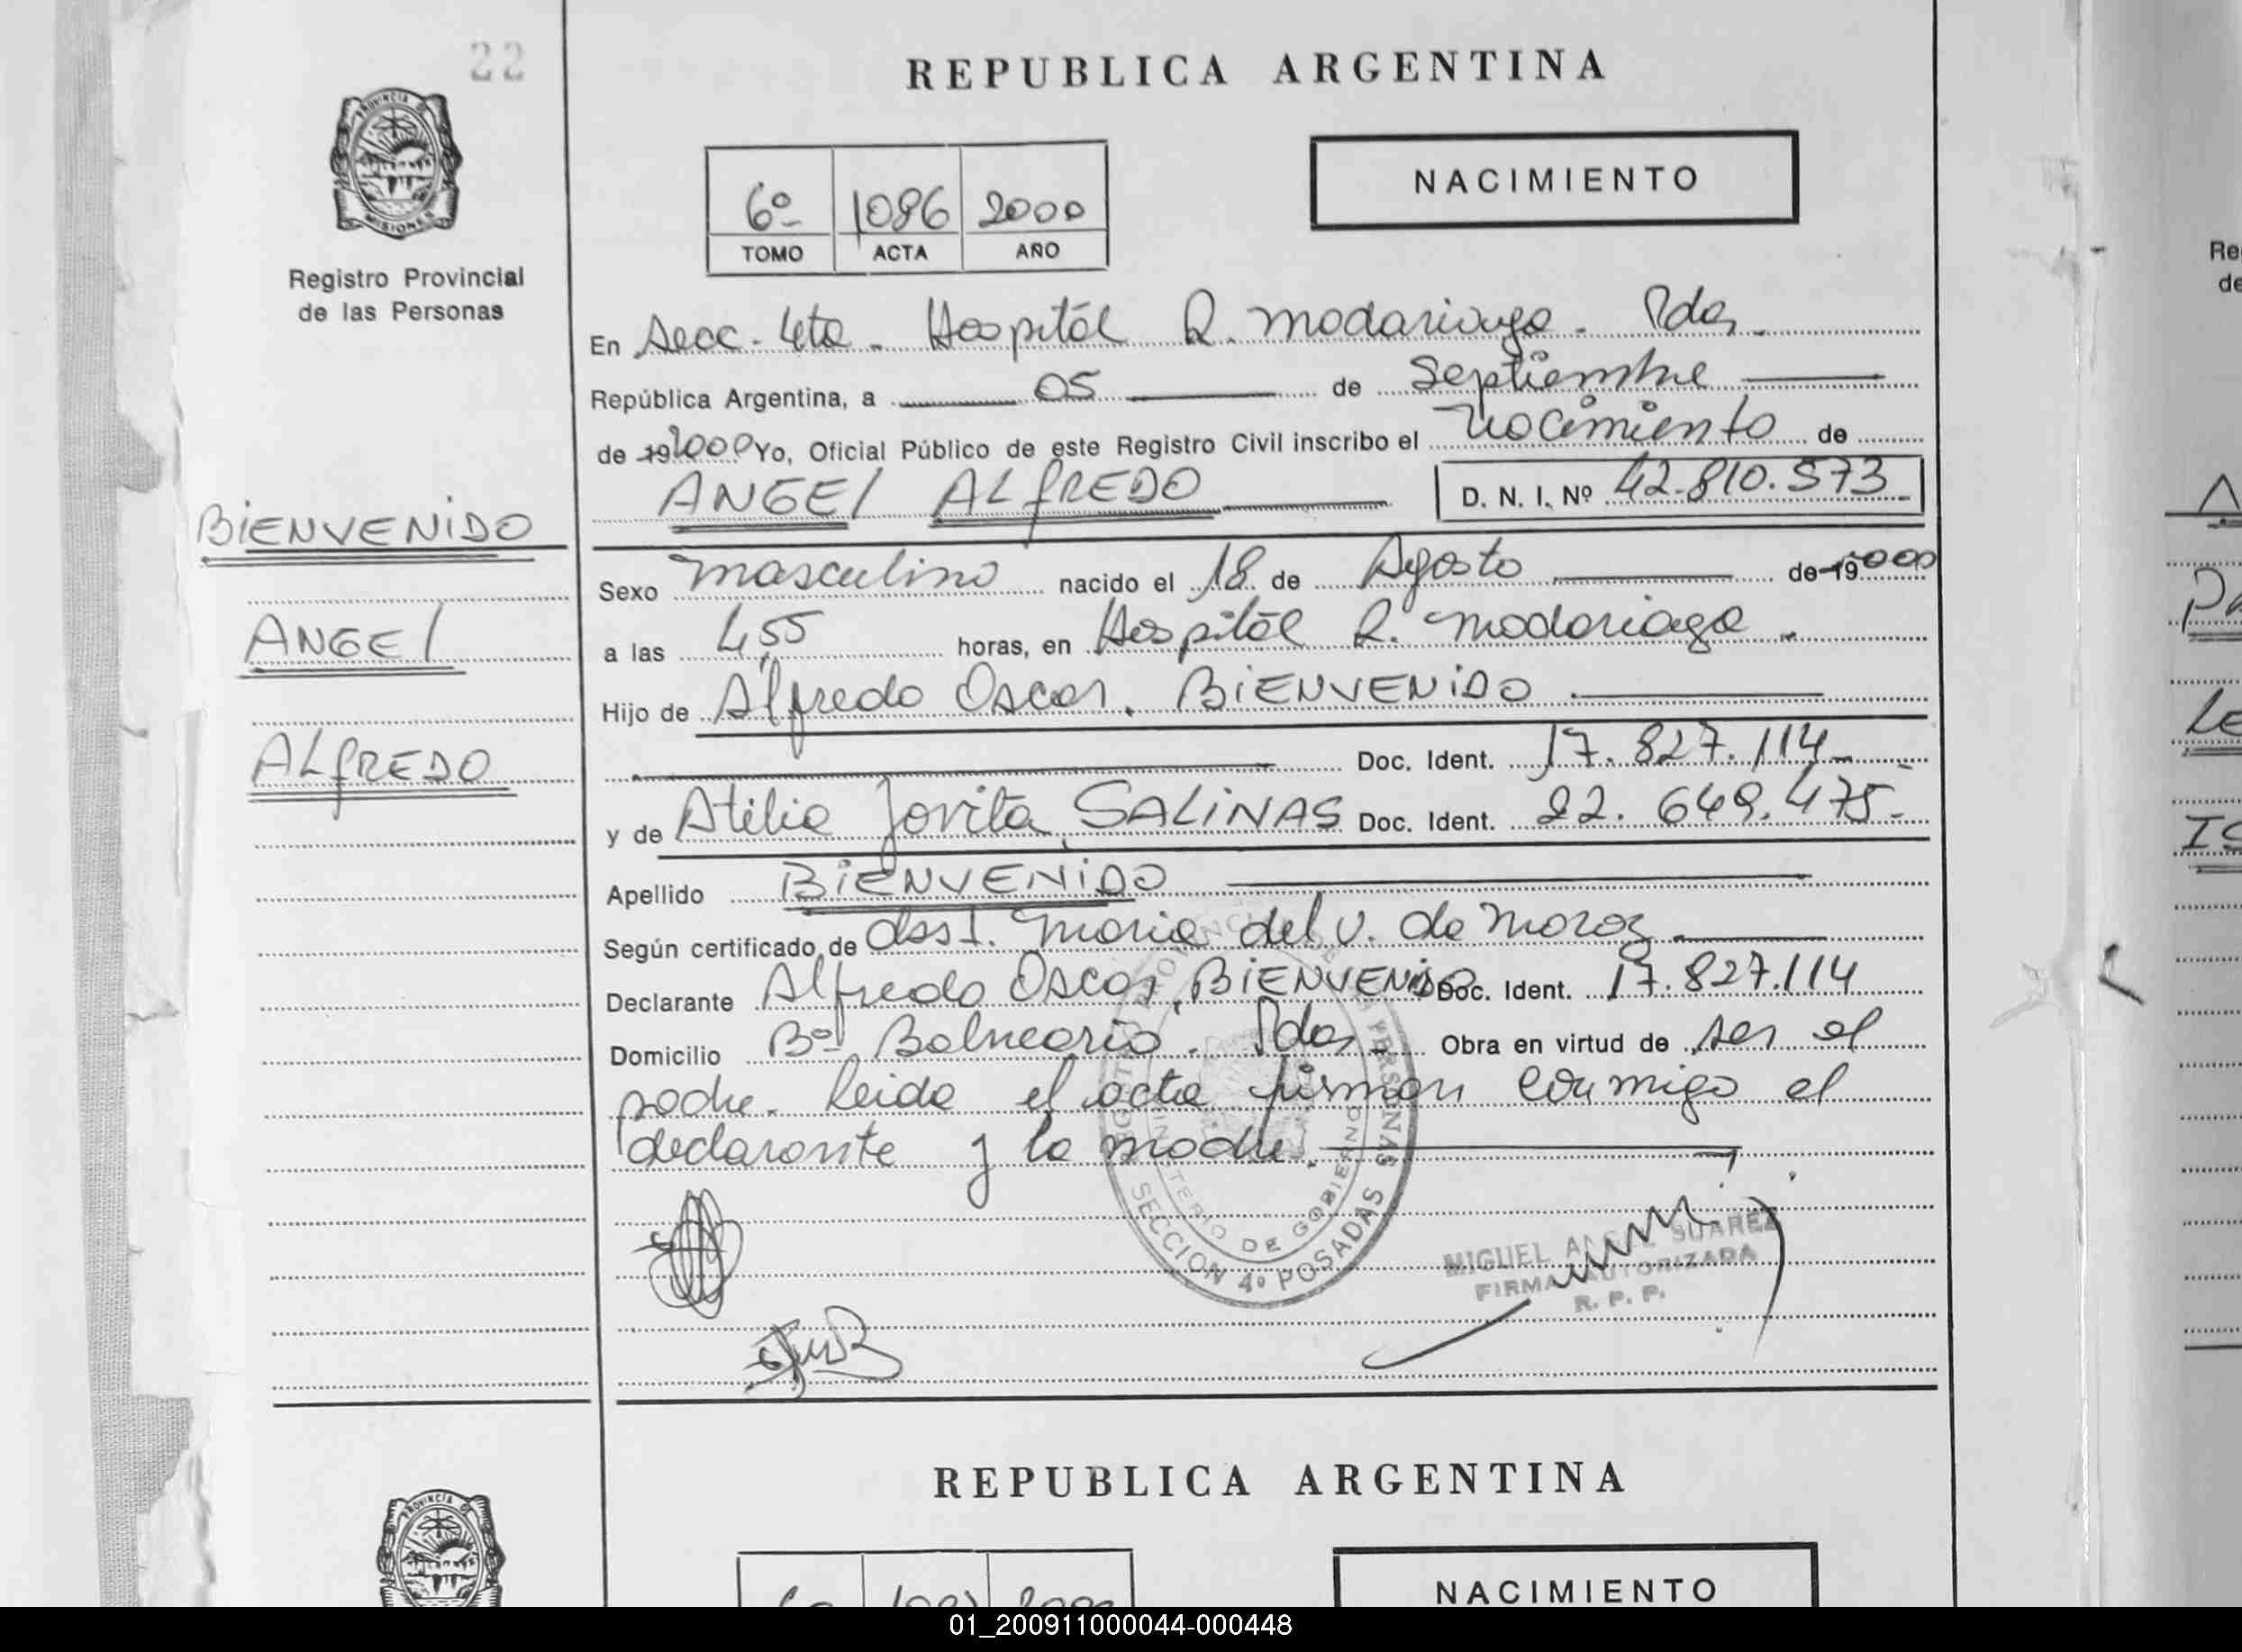 22
REPUBLICA ARGENTINA
PROVINCIA DE
MISIONES
Registro Provincial
de las Personas
6º 1086 2000
TOMO ACTA AÑO
NACIMIENTO
En Secc. 4ta. Hospitál R. Madariaga. Pdas.
República Argentina, a 05 de Septiembre
de 19 2000 Yo, Oficial Público de este Registro Civil inscribo el Nacimiento de
ANGEl ALfREDO D. N. I. Nº 42.810.573
BiENVENiDO
ANGEl
ALfREDO
Sexo masculino nacido el 18 de Agosto de 19 2000
a las 4,55 horas, en Hospitál R. Madariaga.
Hijo de Alfredo Oscar. BiENVENiDO
Doc. Ident. 17.827.114
y de Atilia Jovita, SALiNAS Doc. Ident. 22.649.475
Apellido BiENVENiDO
Según certificado de María del V. de
Declarante Alfredo Oscar, BiENVENiDO Doc. Ident. 17.827.114
Domicilio Bº Balneario. Pdas. Obra en virtud de ser el
padre. Leida el acta firman conmigo el
declarante y la madre.
MINISTERIO DE GOBIERNO
SECCION 4º POSADAS
MIGUEL ANGEL SUAREZ
FIRMA AUTORIZADA
R. P. P.
REPUBLICA ARGENTINA
PROVINCIA
NACIMIENTO
01_200911000044-000448